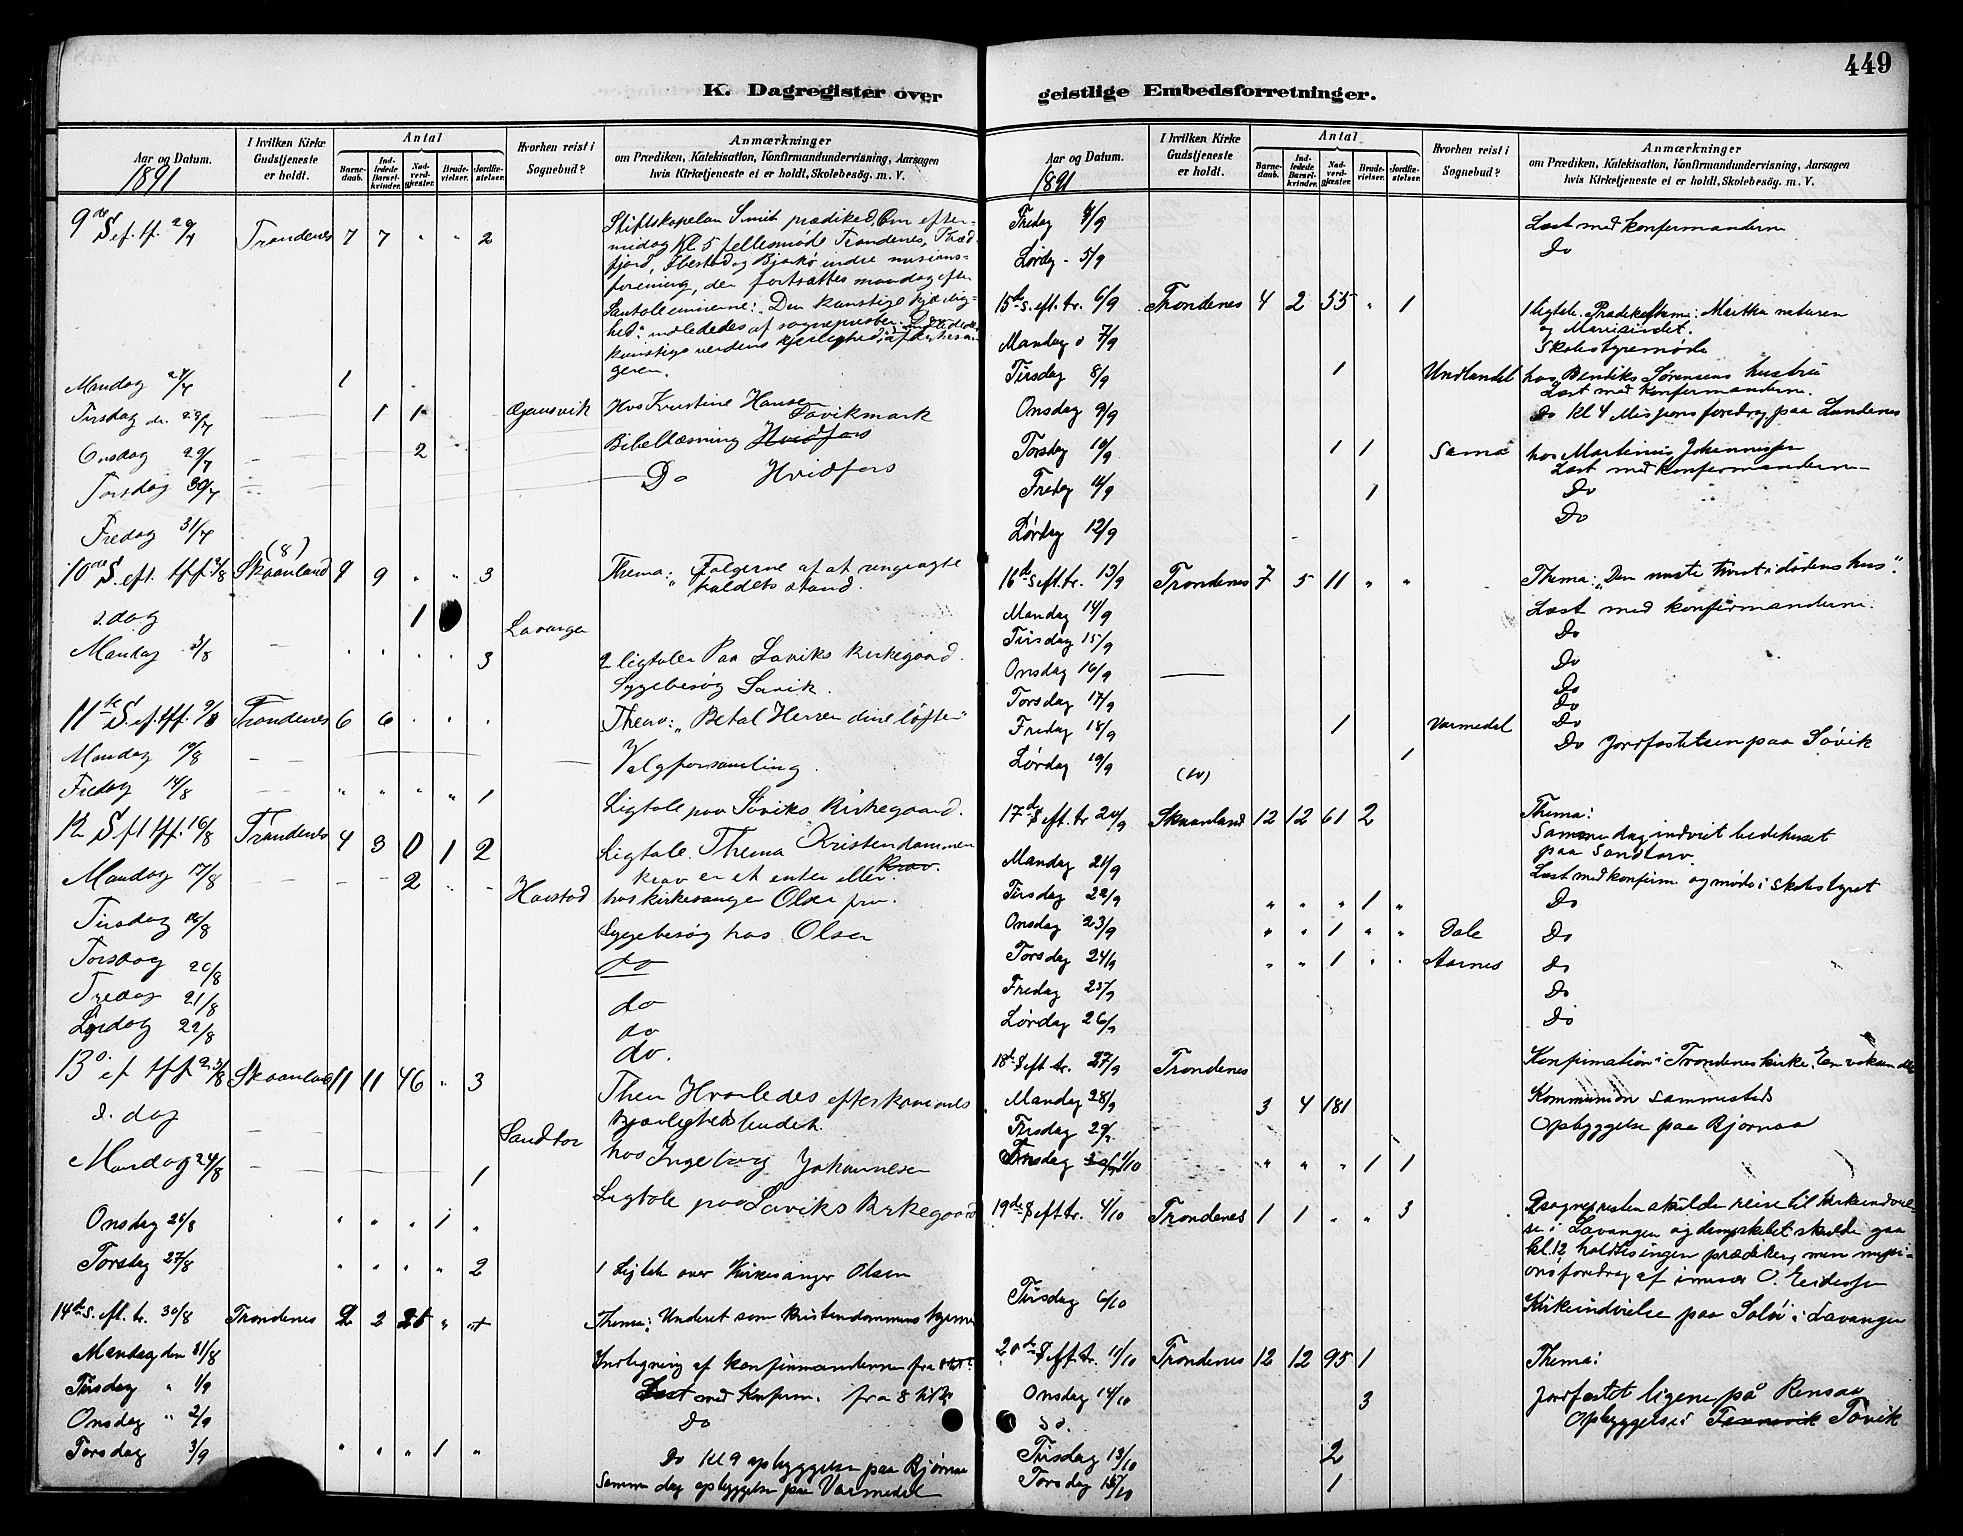 449
K. Dagregister over
geistlige Embedsforretninger.
Aar og Datum.
1891
I hvilken Kirke
Gudstjeneste
er holdt.
Antal
Barne-
daab.
Ind-
ledede
Barsel-
kvinder.
Nad-
verd-
gjester.
Brude-
vielser.
Jordfæ-
stelser.
Hvorhen reist i
Sognebud?
Anmærkninger
om Prædiken, Katekisation, Konfirmandundervisning, Aarsagen
hvis Kirketjeneste ei er holdt, Skolebesøg. m. V.
9de S. ef. tf. Trondenes 7 7 " " 2 Stiftskapelan Smit prædiked. Om efter-
midag Kl. 5 fellesmøde Trondenes,
fjord, Ibestad og Bjarkø indre missions-
forening, der fortsattes mandag efter
geren.
Mandag 1
Tirsdag d. 1 1 Hos Kristine Hansen
Onsdag 29/7 2 Bibellæsning Hvidfors
Torsdag 30/7 Do Hvidfors
Fredag 31/7
(8)
10de S. eft. tff. 2/8 Skaanland 9 9 " " 3 Thema: "Følgerne af at ringeagte
kaldets stand.
s. dag 1 Lavangen
Mandag 3/8 " " " " 3 2 ligtaler Paa Laviks Kirkegaard.
Sygebesøg Lavik.
11te S. ef. tff. 9/8 Trondenes 6 6 " " " Thema: "Betal Herren dine løfter"
Mandag 10/8 Valgforsamling.
Fredag 14/8 " " " " 1 Ligtale paa Søviks Kirkegaard.
12 S. eft tff. 16/8 Trondenes 4 3 0 1 2 Ligtale. Thema Kristendommen
krav er et enten eller krav.
Mandag 17/8 2 Harstad hos kirkesanger Olsen
Tirsdag 18/8 Sygebesøg hos Olsen
Torsdag 20/8 do
Fredag 21/8 do
Lørdag 22/8 do
do.
13 ef tff 23/8 Skaanland 11 11 46 " 3
s. dag Sandtor hos Ingeborg Johannesen
Mandag 24/8 1 Ligtale paa Laviks Kirkegaard
Onsdag 26/8 " " " 1 "
Torsdag 27/8 " " " " 2 1 Ligtale over Kirkesanger Olsen
14de S. eft. tr. 30/8 Trondenes 2 2 25 " Thema: Underet som kristendommens kjerne
Mandag den 31/8 Indtegning af konfirmanderne fra
Tirsdag " 1/9 Læst med Konfirm. fra 8
Onsdag " 2/9 Do
Torsdag 3/9 " " " 1 " Do Kl 9 opbyggelse paa Bjørnaa
Samme dag opbyggelse paa Varmedal
Aar og Datum.
1891
I hvilken Kirke
Gudstjeneste
er holdt.
Antal
Barne-
daab.
Ind-
ledede
Barsel-
kvinder.
Nad-
verd-
gjester.
Brude-
vielser.
Jordfæ-
stelser.
Hvorhen reist i
Sognebud?
Anmærkninger
om Prædiken, Katekisation, Konfirmandundervisning, Aarsagen
hvis Kirketjeneste ei er holdt, Skolebesøg. m. V.
Fredag 4/9 Læst med konfermanderne
Lørdag 5/9 Do
15de S. eft. tr. 6/9 Trondenes 4 2 55 " 1 1 ligtale. Prædiken thema: Martha naturen
og Mariasindet.
Mandag d 7/9 Skolestyremøde
Tirsdag 8/9 1 Undlandet hos Bendiks Sørensens hustru
Læst med konfermanderne.
Onsdag 9/9 Do Kl 4 Misjonsforedrag paa Lundenes
Torsdag 10/9 1 1 Sama hos Martinus Johannessen
Læst med konfermanderne
Fredag 11/9 1 Do
Lørdag 12/9 Do
16de S. eft. tr. 13/9 Trondenes 7 5 11 " " Thema: "Den mest trøst i dødens hus".
Mandag 14/9 Læst med konfirmanderne.
Tirsdag 15/9 Do
Onsdag 16/9 Do
Torsdag 17/9 Do
Do
Fredag 18/9 1 Varmedal Do
Lørdag 19/9 1 Do Jordfæstelsen paa Søvik
(10)
17de S. eft. tr 20/9 Skaanland 12 12 61 2 Thema:
Samme dag indviet bedehuset
paa Sandtorv.
Mandag 21/9 Læst med konfirm og møde i skolestyret
Tirsdag 22/9 " " " 1 " Do
Onsdag 23/9 " " 1 " " Dale Do
Torsdag 24/9 " " 1 " " Aarnes Do
Fredag 25/9 Do
Lørdag 26/9 Do
18de S. eft. tr. 27/9 Trondenes Konfirmation i Trondenes kirke.
Mandag 28/9 3 4 181 Kommunion sammesteds
Tirsdag 29/9 Opbyggelse paa Bjørnaa
1/10 " " " 1 1
19de S. eft tr. 4/10 Trondenes 1 1 " " 3 Sognepresten skulde reise til kirkeindviel-
se i Lavangen og dampskibet skulde gaa
kl. 12 holdtes ingen prædiken, men misji-
onsforedrag af
Tirsdag 6/10 Kirkeindvielse paa Soløi i Lavangen
20de S. eft. tr. 11/10 Trondenes 12 12 95 1 Thema:
Onsdag 14/10 3 Jordfæstet ligene på Rensaa
s d. Opbyggelse i Tovik
Tirsdag 13/10 2
Torsdag 15/10 1